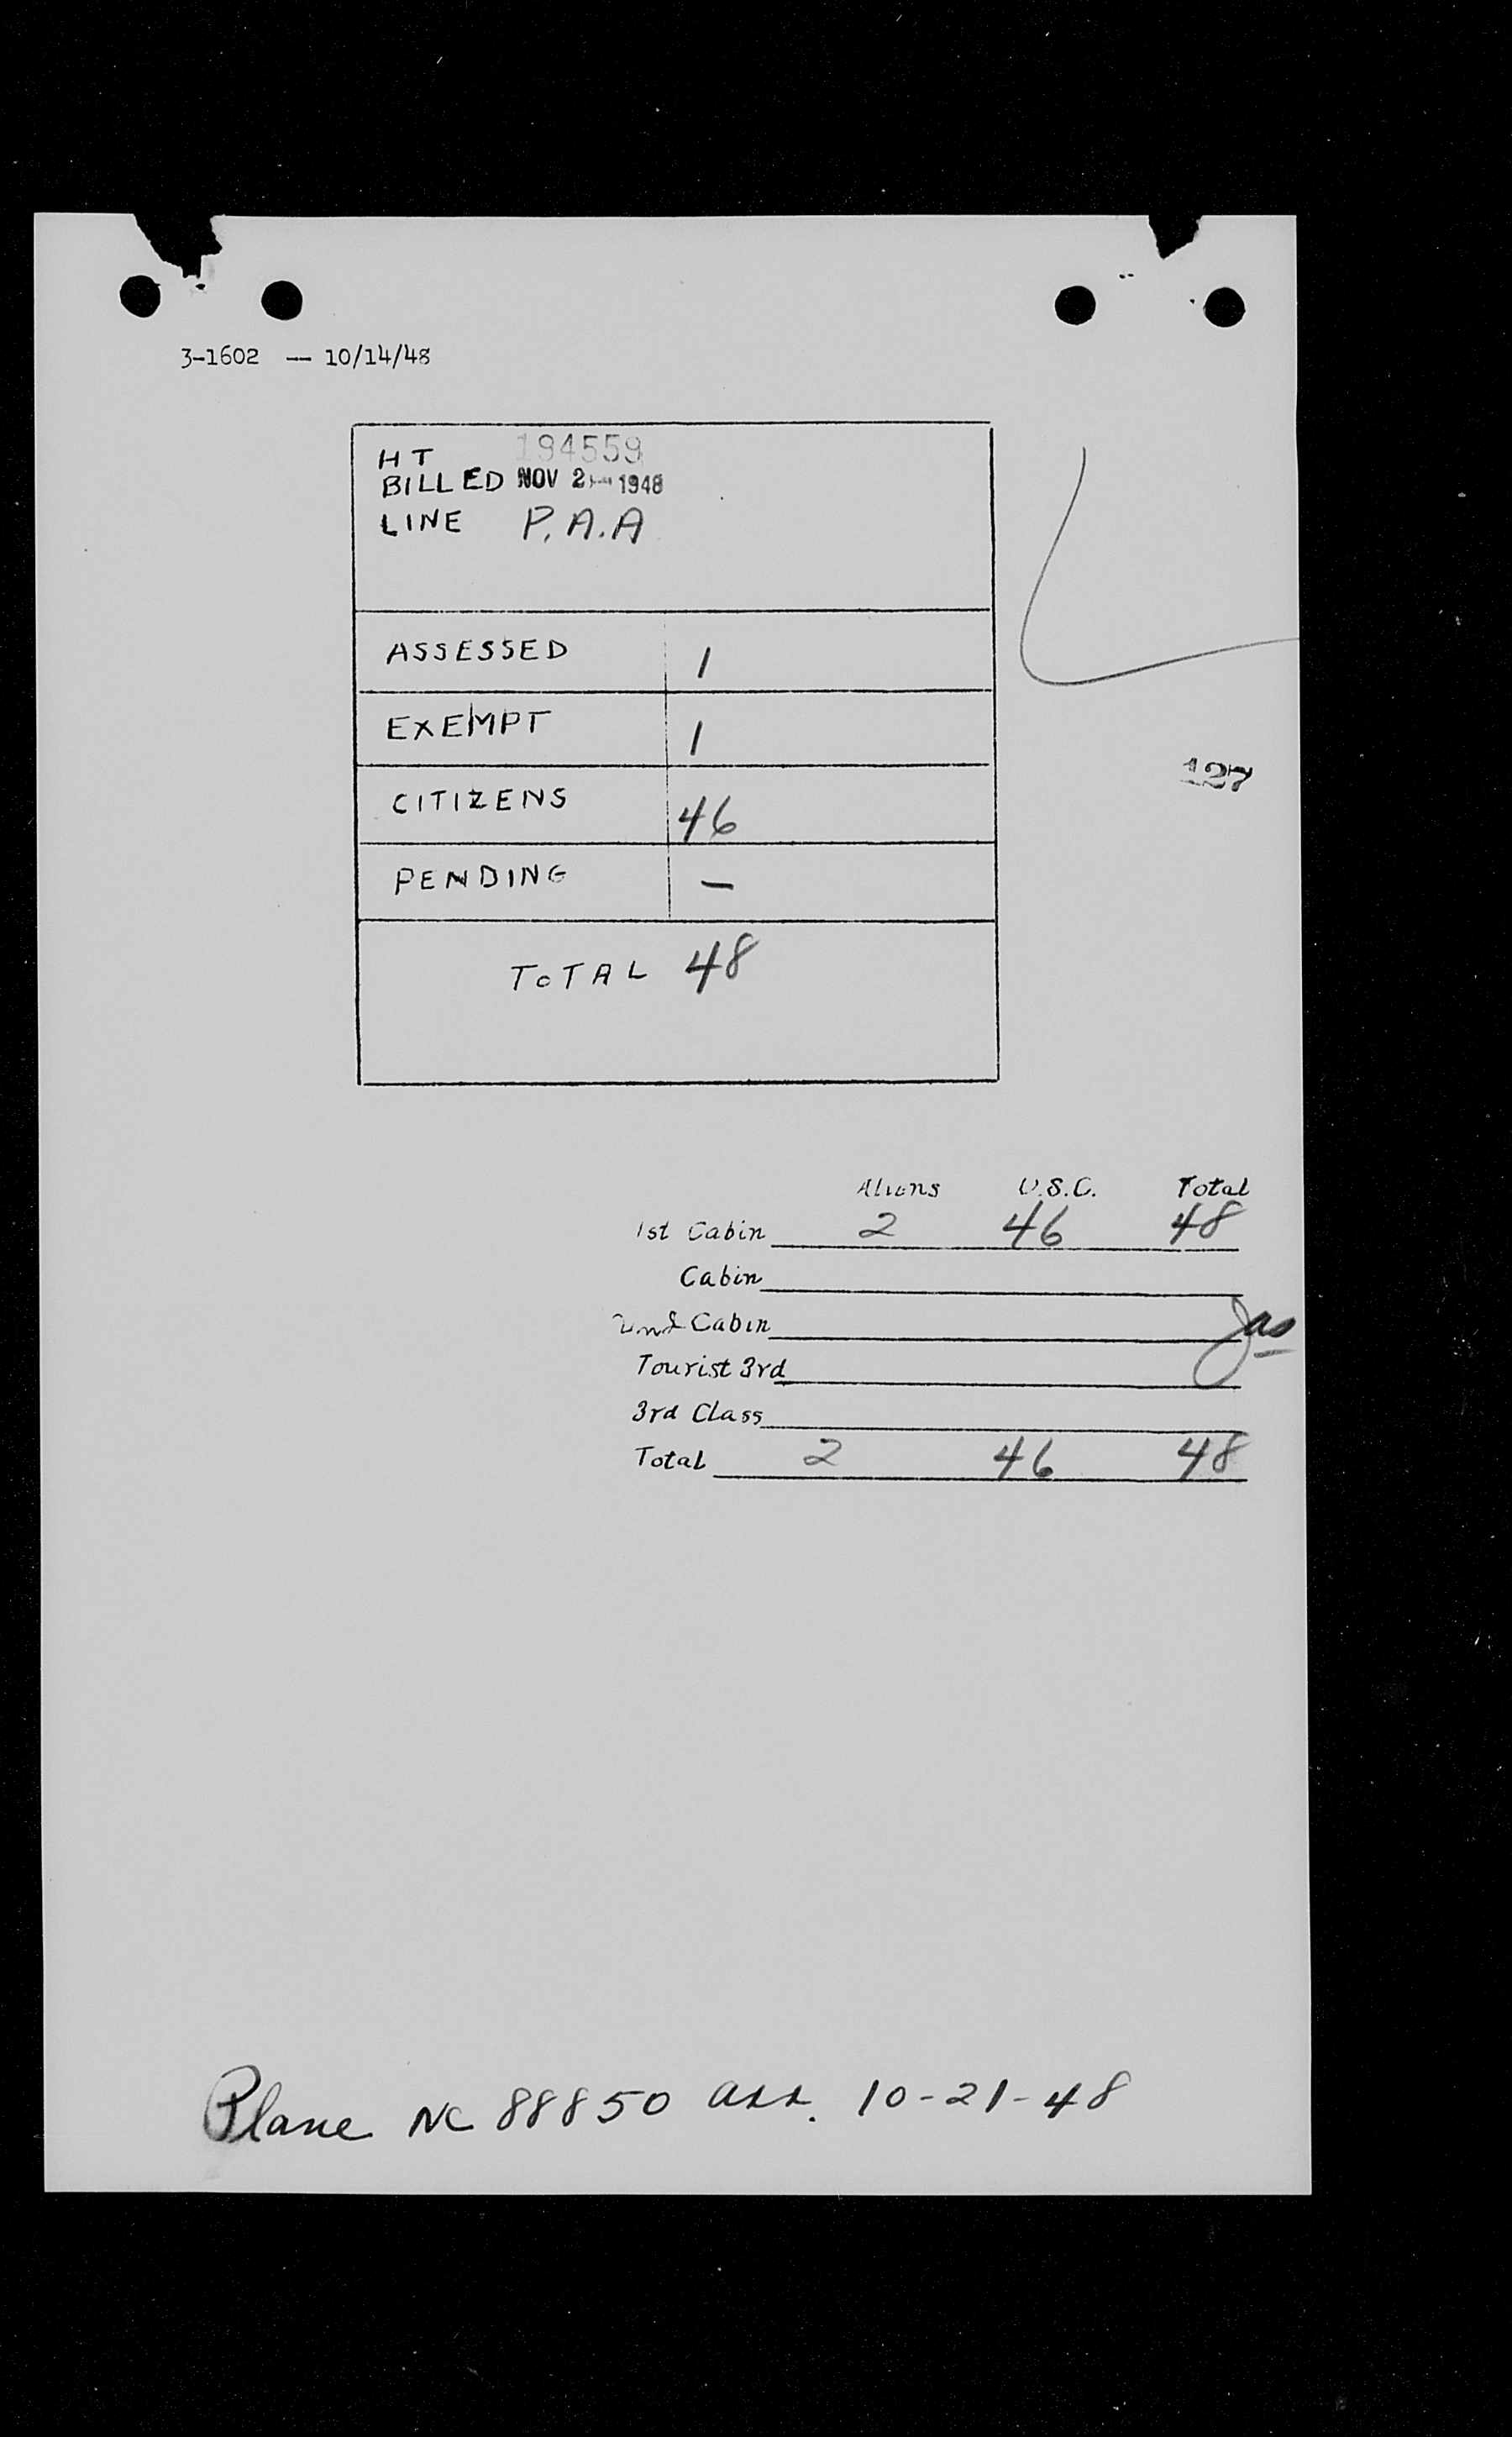 3-1602 -- 10/14/48
HT 194559
BILLED NOV 2 1948
LINE P.A.A
ASSESSED 1
EXEMPT 1
127
CITIZENS 46
PENDING -
TOTAL 48
Aliens U.S.C. Total
1st Cabin 2 46 48
Cabin
2nd Cabin
Tourist 3rd
3rd Class
Total 2 46 48
Plane NC 88850 arr. 10-21-48